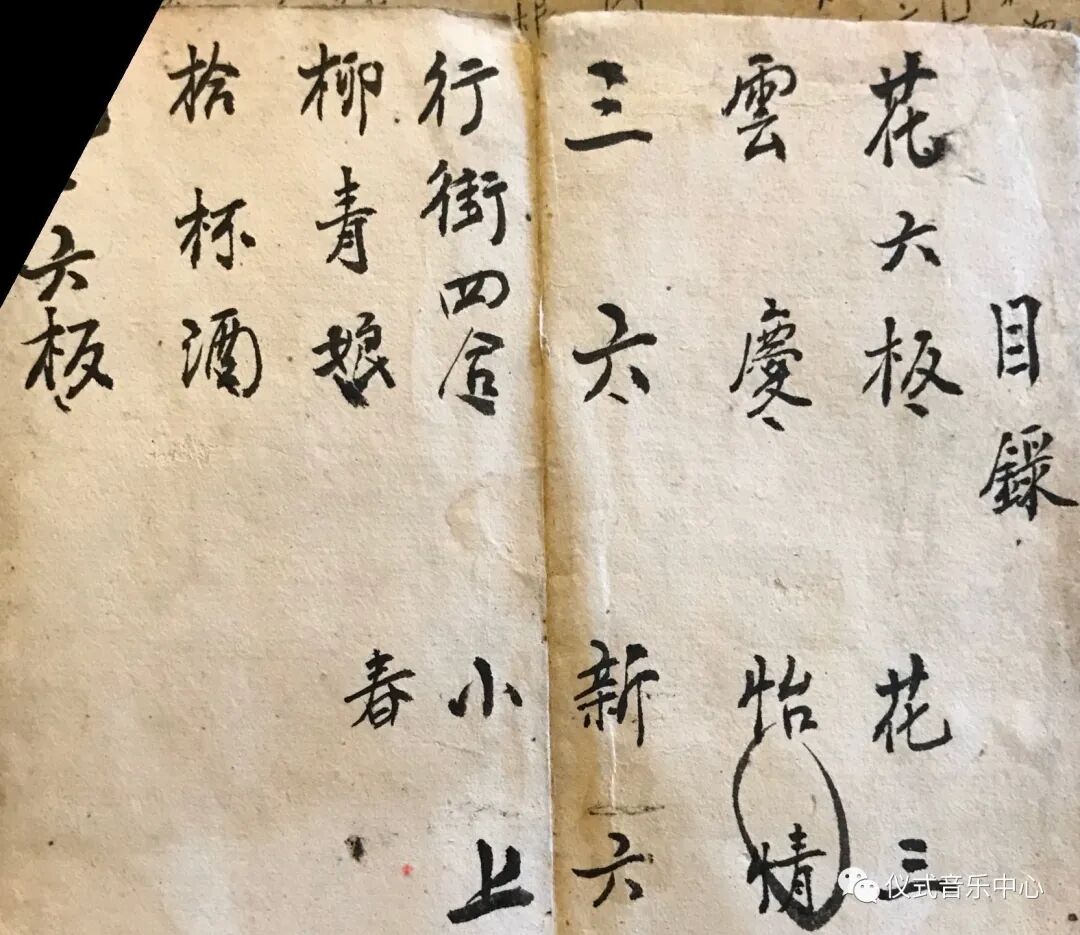 目錄
花六板 花三
雲慶 怡情
三六 新六
行街四合 小上
柳青娘 春
拾杯酒
六板
仪式音乐中心